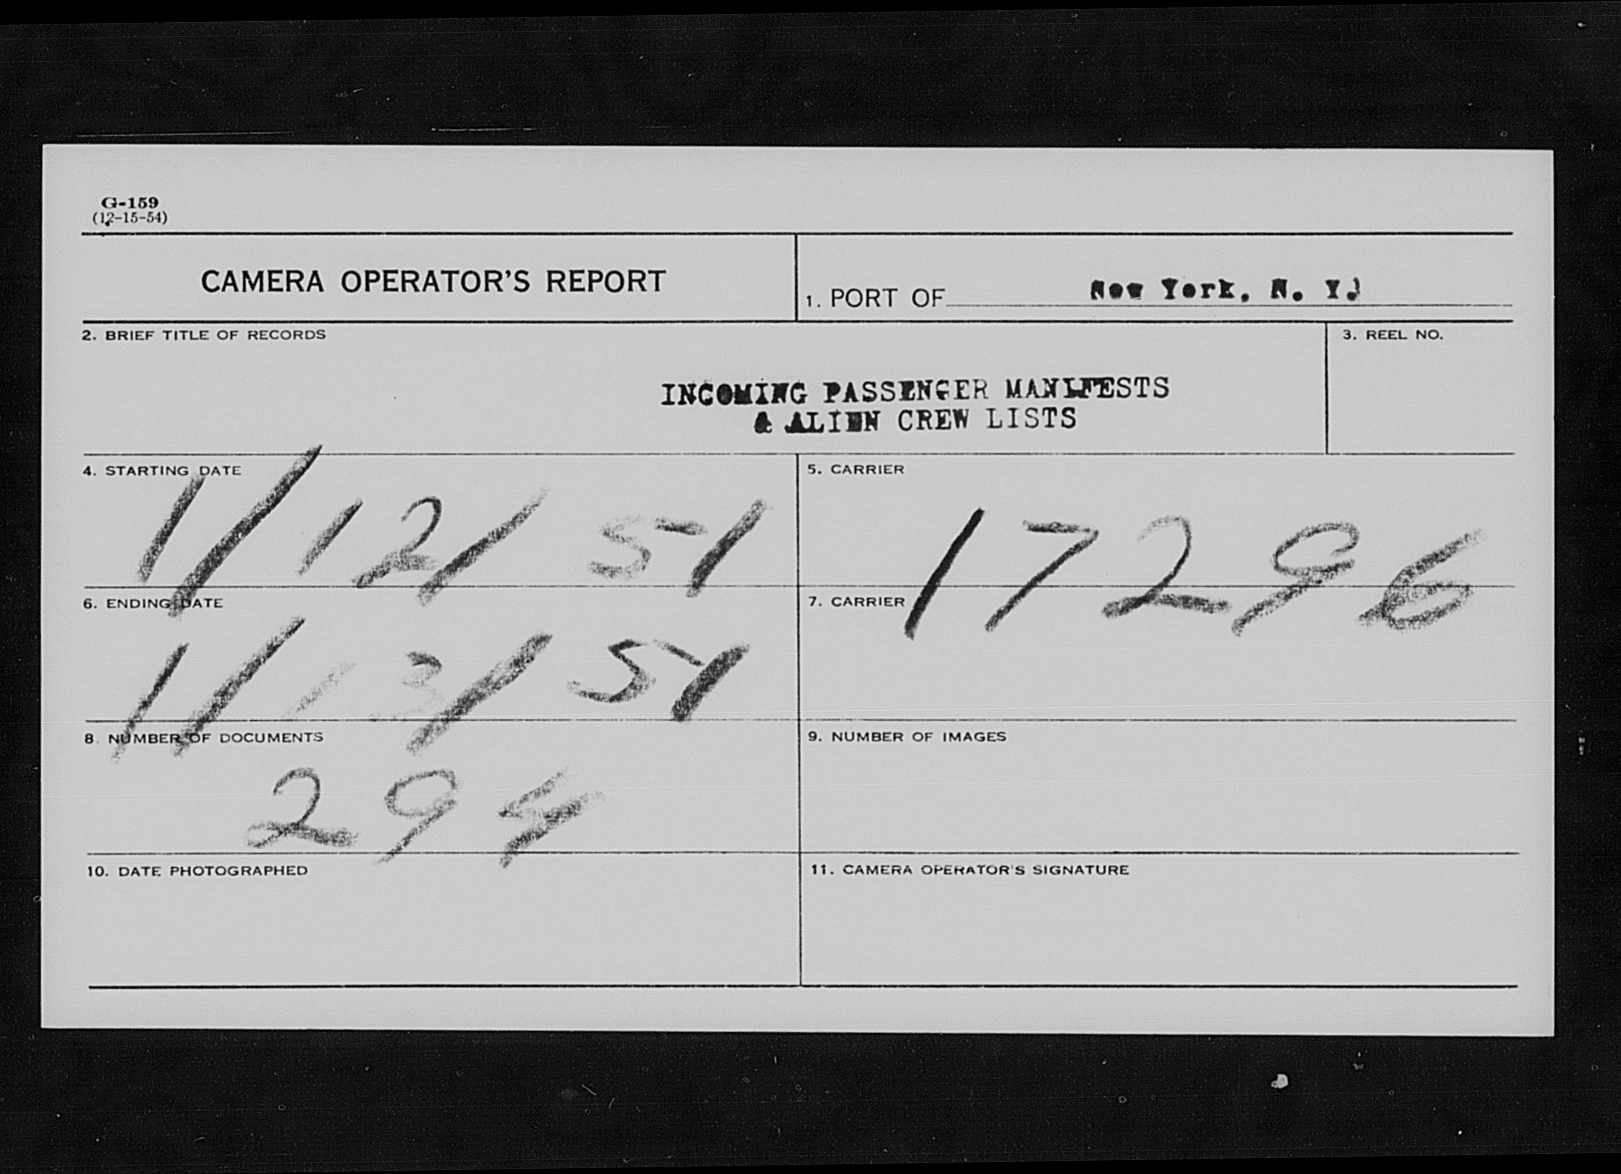 G-159
(12-15-54)
CAMERA OPERATOR'S REPORT
1. PORT OF New York, N. Y.
2. BRIEF TITLE OF RECORDS
3. REEL NO.
INCOMING PASSENGER MANIFESTS
& ALIEN CREW LISTS
4. STARTING DATE
1/12/51
5. CARRIER
17296
6. ENDING DATE
1/13/51
7. CARRIER
8. NUMBER OF DOCUMENTS
294
9. NUMBER OF IMAGES
10. DATE PHOTOGRAPHED
11. CAMERA OPERATOR'S SIGNATURE